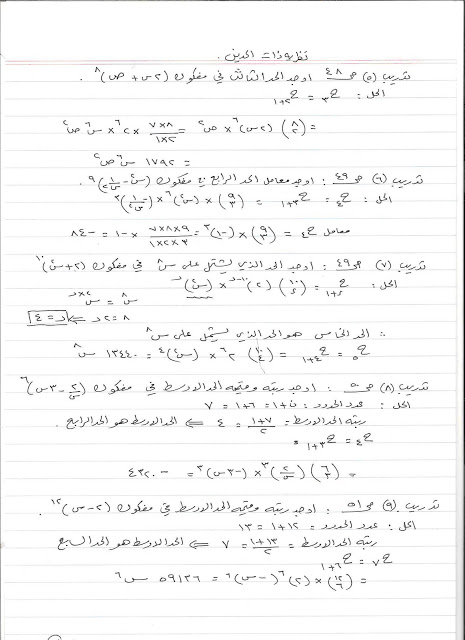 نظرية ذات الحدين .
تدريب (٥) صـ ٤٨ اوجد الحد الثالث في مفكوك (٢س + ص)^٨ .
الحل : ح٣ = ح٢+١
= (٨ ٢) (٢س)^٦ × ص^٢ = ٨×٧ / ٢×١ × ٢^٦ × س^٦ ص^٢
= ١٧٩٢ س^٦ ص^٢
تدريب (٦) صـ ٤٩ : اوجد معامل الحد الرابع في مفكوك (س^٢ - ١/س^٢)^٩
الحل : ح٤ = ح٣+١ = (٩ ٣) × (س^٢)^٦ × (-١/س^٢)^٣
معامل ح٤ = (٩ ٣) × (-١)^٣ = ٩×٨×٧ / ٣×٢×١ × -١ = -٨٤
تدريب (٧) صـ ٤٩ : اوجد الحد الذي يشتمل على س^٨ في مفكوك (٢ + س^٢)^١٠
الحل : ح ر+١ = (١٠ ر) (٢)^١٠-ر × (س^٢)^ر
س^٨ = س^٢×ر
٨ = ٢ر ⇐ ر = ٤
∴ الحد الخامس هو الحد الذي يشتمل على س^٨
ح٥ = ح٤+١ = (١٠ ٤) ٢^٦ × (س^٢)^٤ = ١٣٤٤٠ س^٨
تدريب (٨) صـ ٥٠ : اوجد رتبة وقيمة الحد الاوسط في مفكوك (٢/س - ٣س)^٦
الحل : عدد الحدود : ن + ١ = ٦ + ١ = ٧
رتبة الحد الاوسط = ٧+١ / ٢ = ٤ ⇐ الحد الاوسط هو الحد الرابع .
ح٤ = ح٣+١ =
= (٦ ٣) (٢/س)^٣ × (-٣س)^٣ = -٤٣٢٠
تدريب (٩) صـ ٥١ : اوجد رتبة وقيمة الحد الاوسط في مفكوك (٢ - س)^١٢ .
الحل : عدد الحدود = ١٢ + ١ = ١٣
رتبة الحد الاوسط = ١٣+١ / ٢ = ٧ ⇐ الحد الاوسط هو الحد السابع
ح٧ = ح٦+١
= (١٢ ٦) × (٢)^٦ (-س)^٦ = ٥٩١٣٦ س^٦